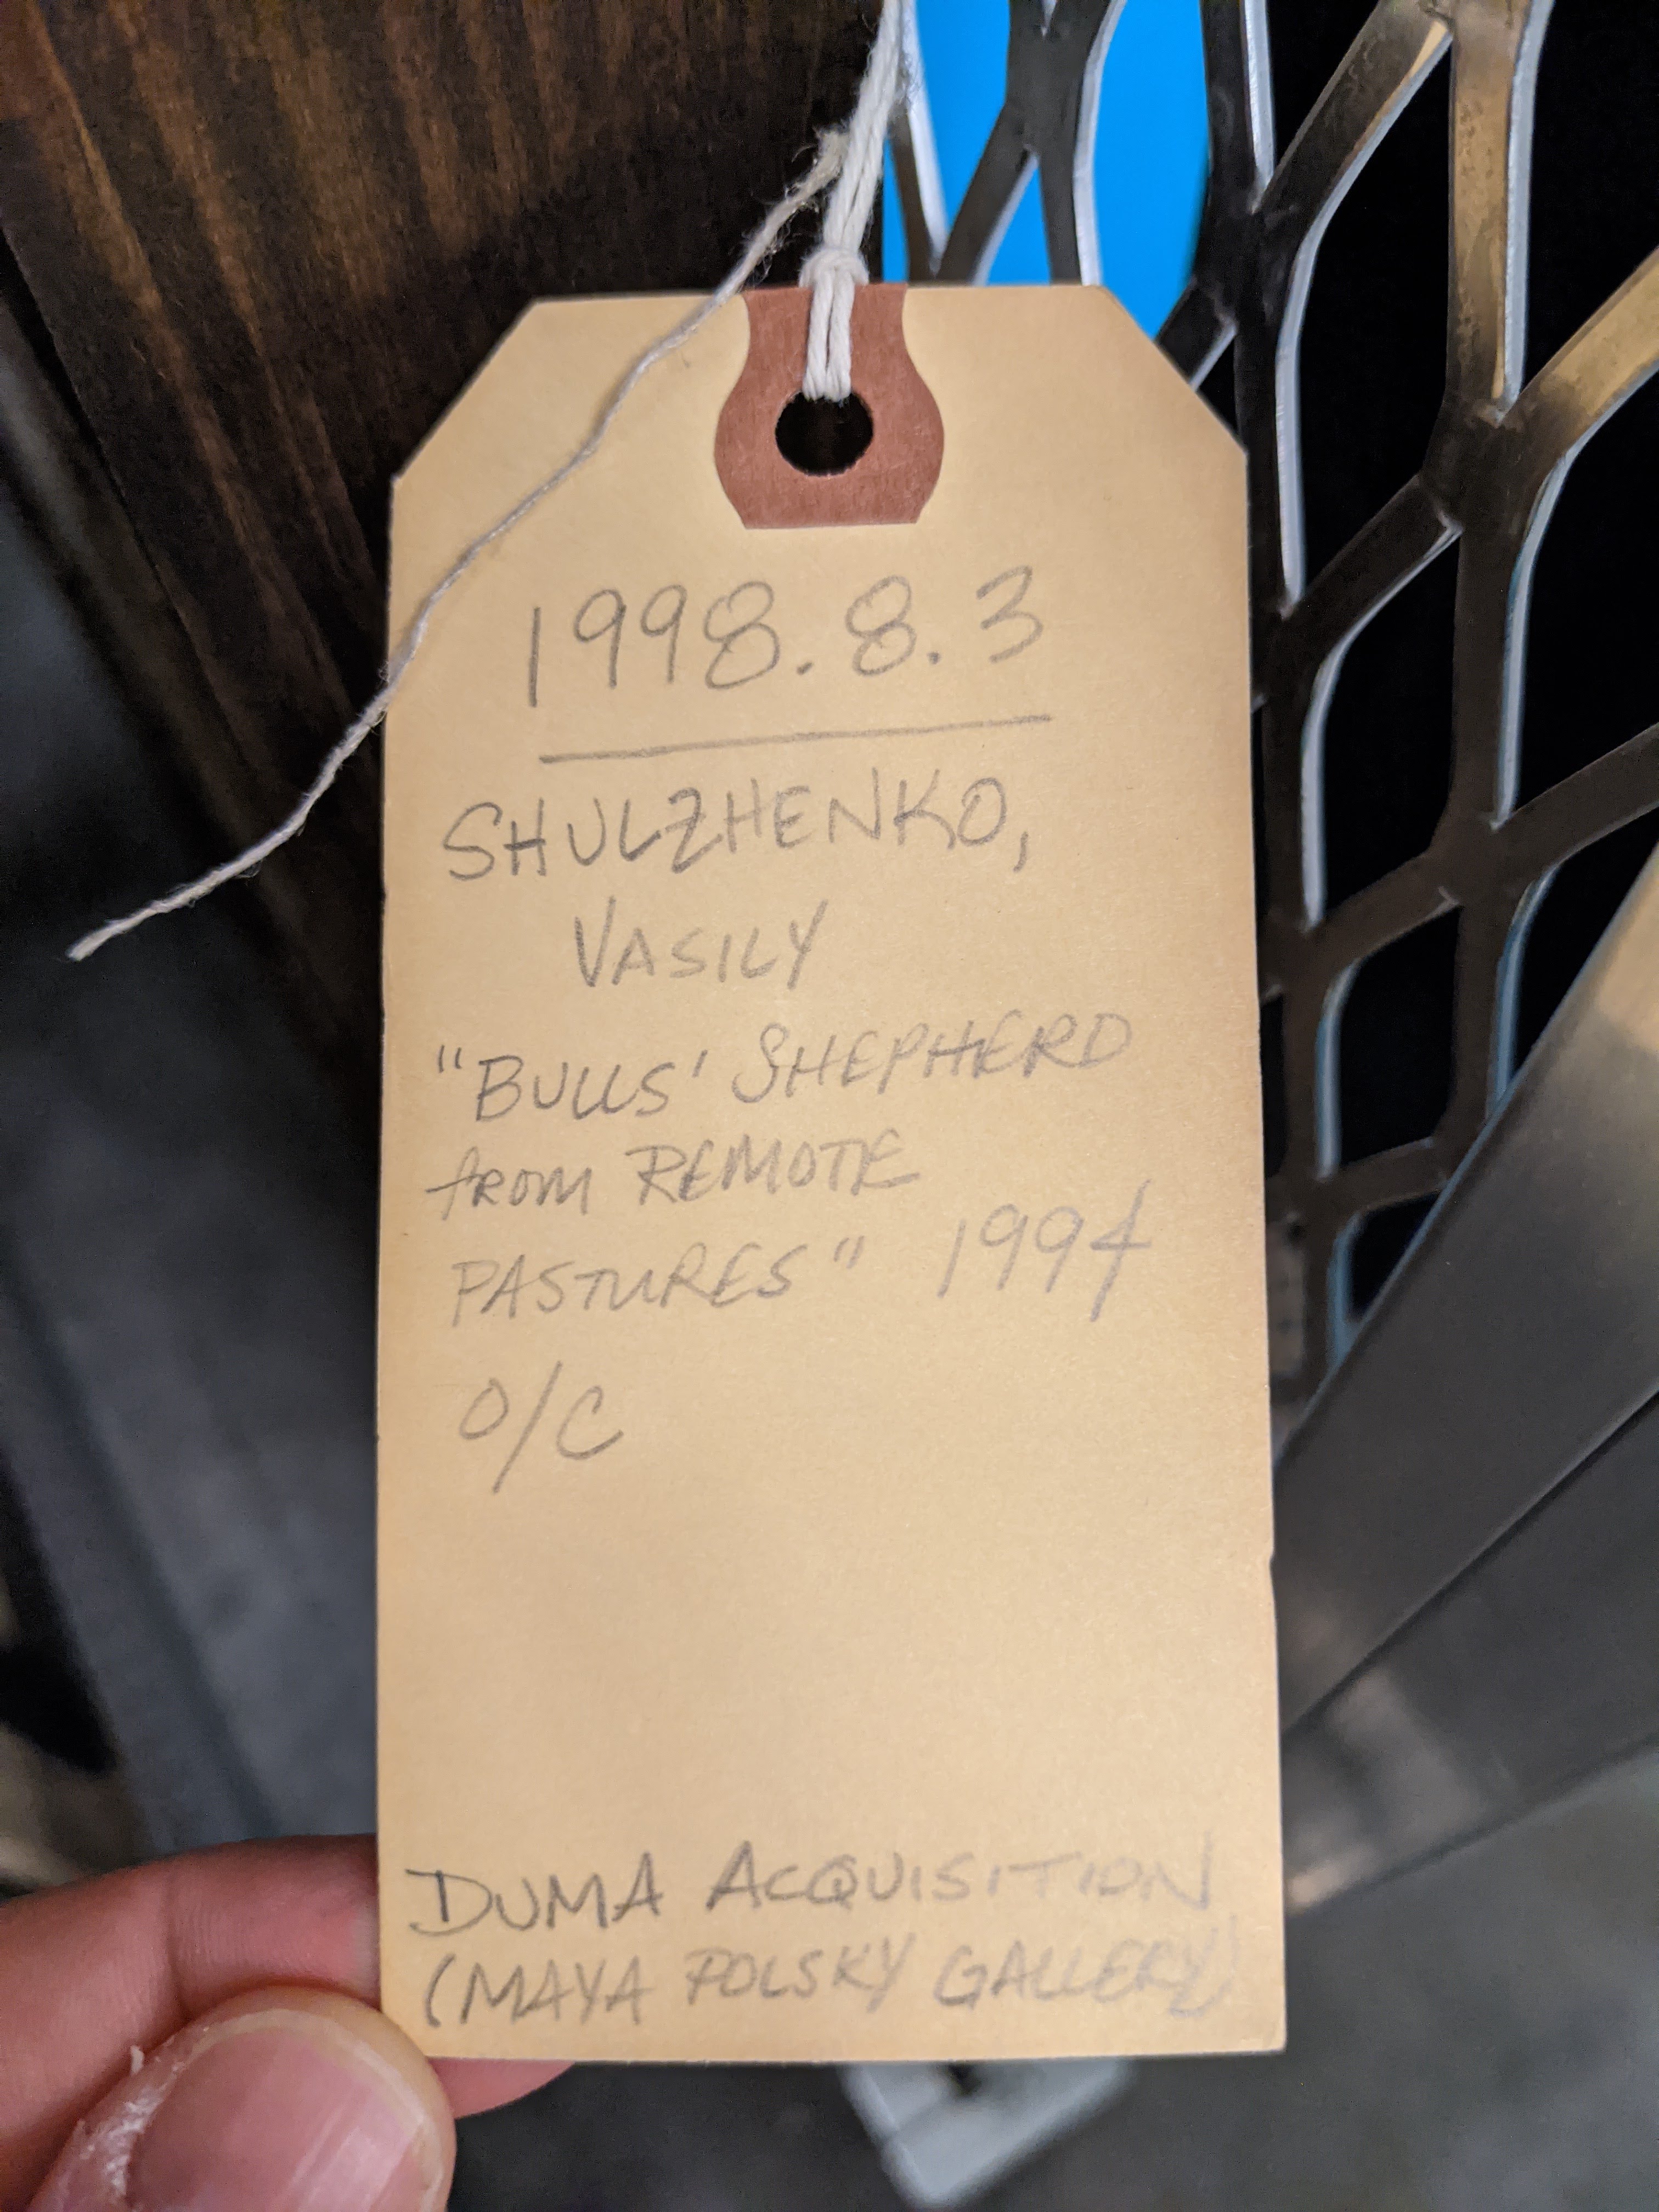 1998.8.3
SHULZHENKO,
VASILY
"BULLS' SHEPHERD
FROM REMOTE
PASTURES" 1994
O/C
DUMA ACQUISITION
(MAYA POLSKY GALLERY)